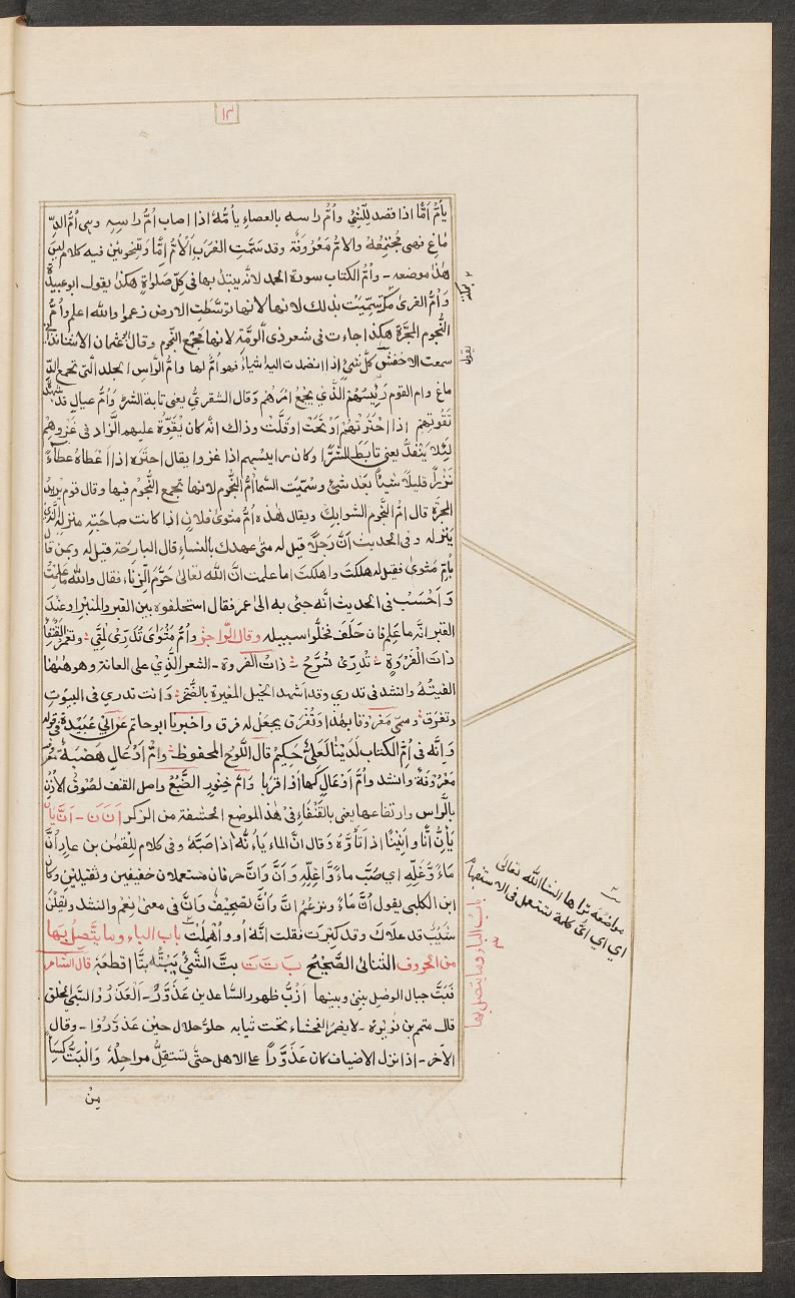 ١٣
يأم أما اذا قصد للشئ وأم راسه بالعصاء يأمه اذا اصاب أم راسه وهى أم الد
ماغ فهى مجتمعه والام معروفة وقد سمت العرب الأم إما وللنحويين فيه كلام ليس
هذا موضعه ـ وأم الكتاب سورة الحمد لانه يبتدئ بها فى كل صلواة هكذا يقول ابو عبيدة
وأم القرى مكة سميت بذلك لانها لانها توسطت الارض زعموا والله اعلم وأم
النجوم المجرة هكذا جاءت فى شعر ذى الرمة لانها مجمع النجوم وقال عثمان الاشناندا
سمعت الاخفش كل شئ اذا انضمت اليه اشياء فهو أم لها وام الراس الجلد التى تجمع الد
ماغ وام القوم رئيسهم الذي يجمع امرهم وقال الشنفرى يعنى تابة الشر وأم عيال قد شهدت
تقوتهم اذا احترتهم اوتحت واقلت وذاك انه كان يقوته عليهم الزاد فى غزوهم
لئلا ينفد يعنى تابط الشرا وكان رايسهم اذا غزوا يقال احتره اذا اعطاه عطاء
نزرا قليلا شيئا بعد شئ وسميت السما أم النجوم لانها تجمع النجوم فيها وقال قوم يريد
المجرة قال ام النجوم الشوابك ويقال هذه أم مثوى فلان اذا كانت صاحبة منزله الذى
ينزله وفى الحديث ان رجلا قيل له متى عهدك بالنساء قال البارحة قيل له وبمن قا
بأم مثوى فقيل له هلكت واهلكت اما علمت ان الله تعالى حرم الزناء فقال والله ما علمت
واحسب فى الحديث انه جئ به الى عمر فقال استحلفوه بين القبر والمنبر او عند
القبر انه ما علم فان حلف فخلوا سبيله وقال الراجز وأم مثوى تدرى لمتى وتغمز القنفا
ذات الفروة تدرى تسرح ذات الفروة ـ الشعر الذي على العانة وهو ههنا
الفيشة وانشد فى تدري وقد اشهد الخيل المغيرة بالضحى وانت تدري فى البيوت
وتفرق وسمى مفروقا بهذا وتفرق يجعل له فرق واخبرنا ابو حاتم عن ابى عبيدة فى قوله
وانه فى أم الكتاب لدينا لعلى حكيم قال اللوح المحفوظ وام ادعال هضبة
معروفة وانشد وأم اوعال كها اذا قربا وام خنور الضبع واصل القنف لصوق الأذن
بالراس وارتفاعها يعنى بالقنفاء فى هذا الموضع الحشفة من الذكر أ ن ن ـ ان يا
يأن أنا وانينا اذا تاوه وقال ان الماء يأنه اذا صبه وفى كلام للقمن بن عاد أن
ماء وغله اى صب ماء واغله وأن وان حرفان مستعملان خفيفين وثقيلين وكا
ابن الكلبى يقول أن ماء ويزعم ان وأن تصحيف وان فى معنى نعم وانشد ويقلن
شيب قد علاك وقد كبرت فقلت انه أ و و أهملت باب الباء وما يتصل بها
من الحروف الثنائى الصحيح ب ت ت بت الشئ يبته بتا اذا قطعه قال الشاعر
فبت حبال الوصل بينى وبينها أزب ظهور الساعدين عذور ـ العذور السئ الخلق
قال متمم بن نويرة ـ لا يضمر الفحشاء تحت ثيابه حلو حلال حين عذورا ـ وقال
الآخر ـ اذا نزل الاضياف كان عذورا على الاهل حتى تستقل مراجله والبت كسا
من
مواضعه تراها انشاالله تعالى
اى اى اى كلمة تستعمل فى الاستفها
باب الباء وما يتصل بها